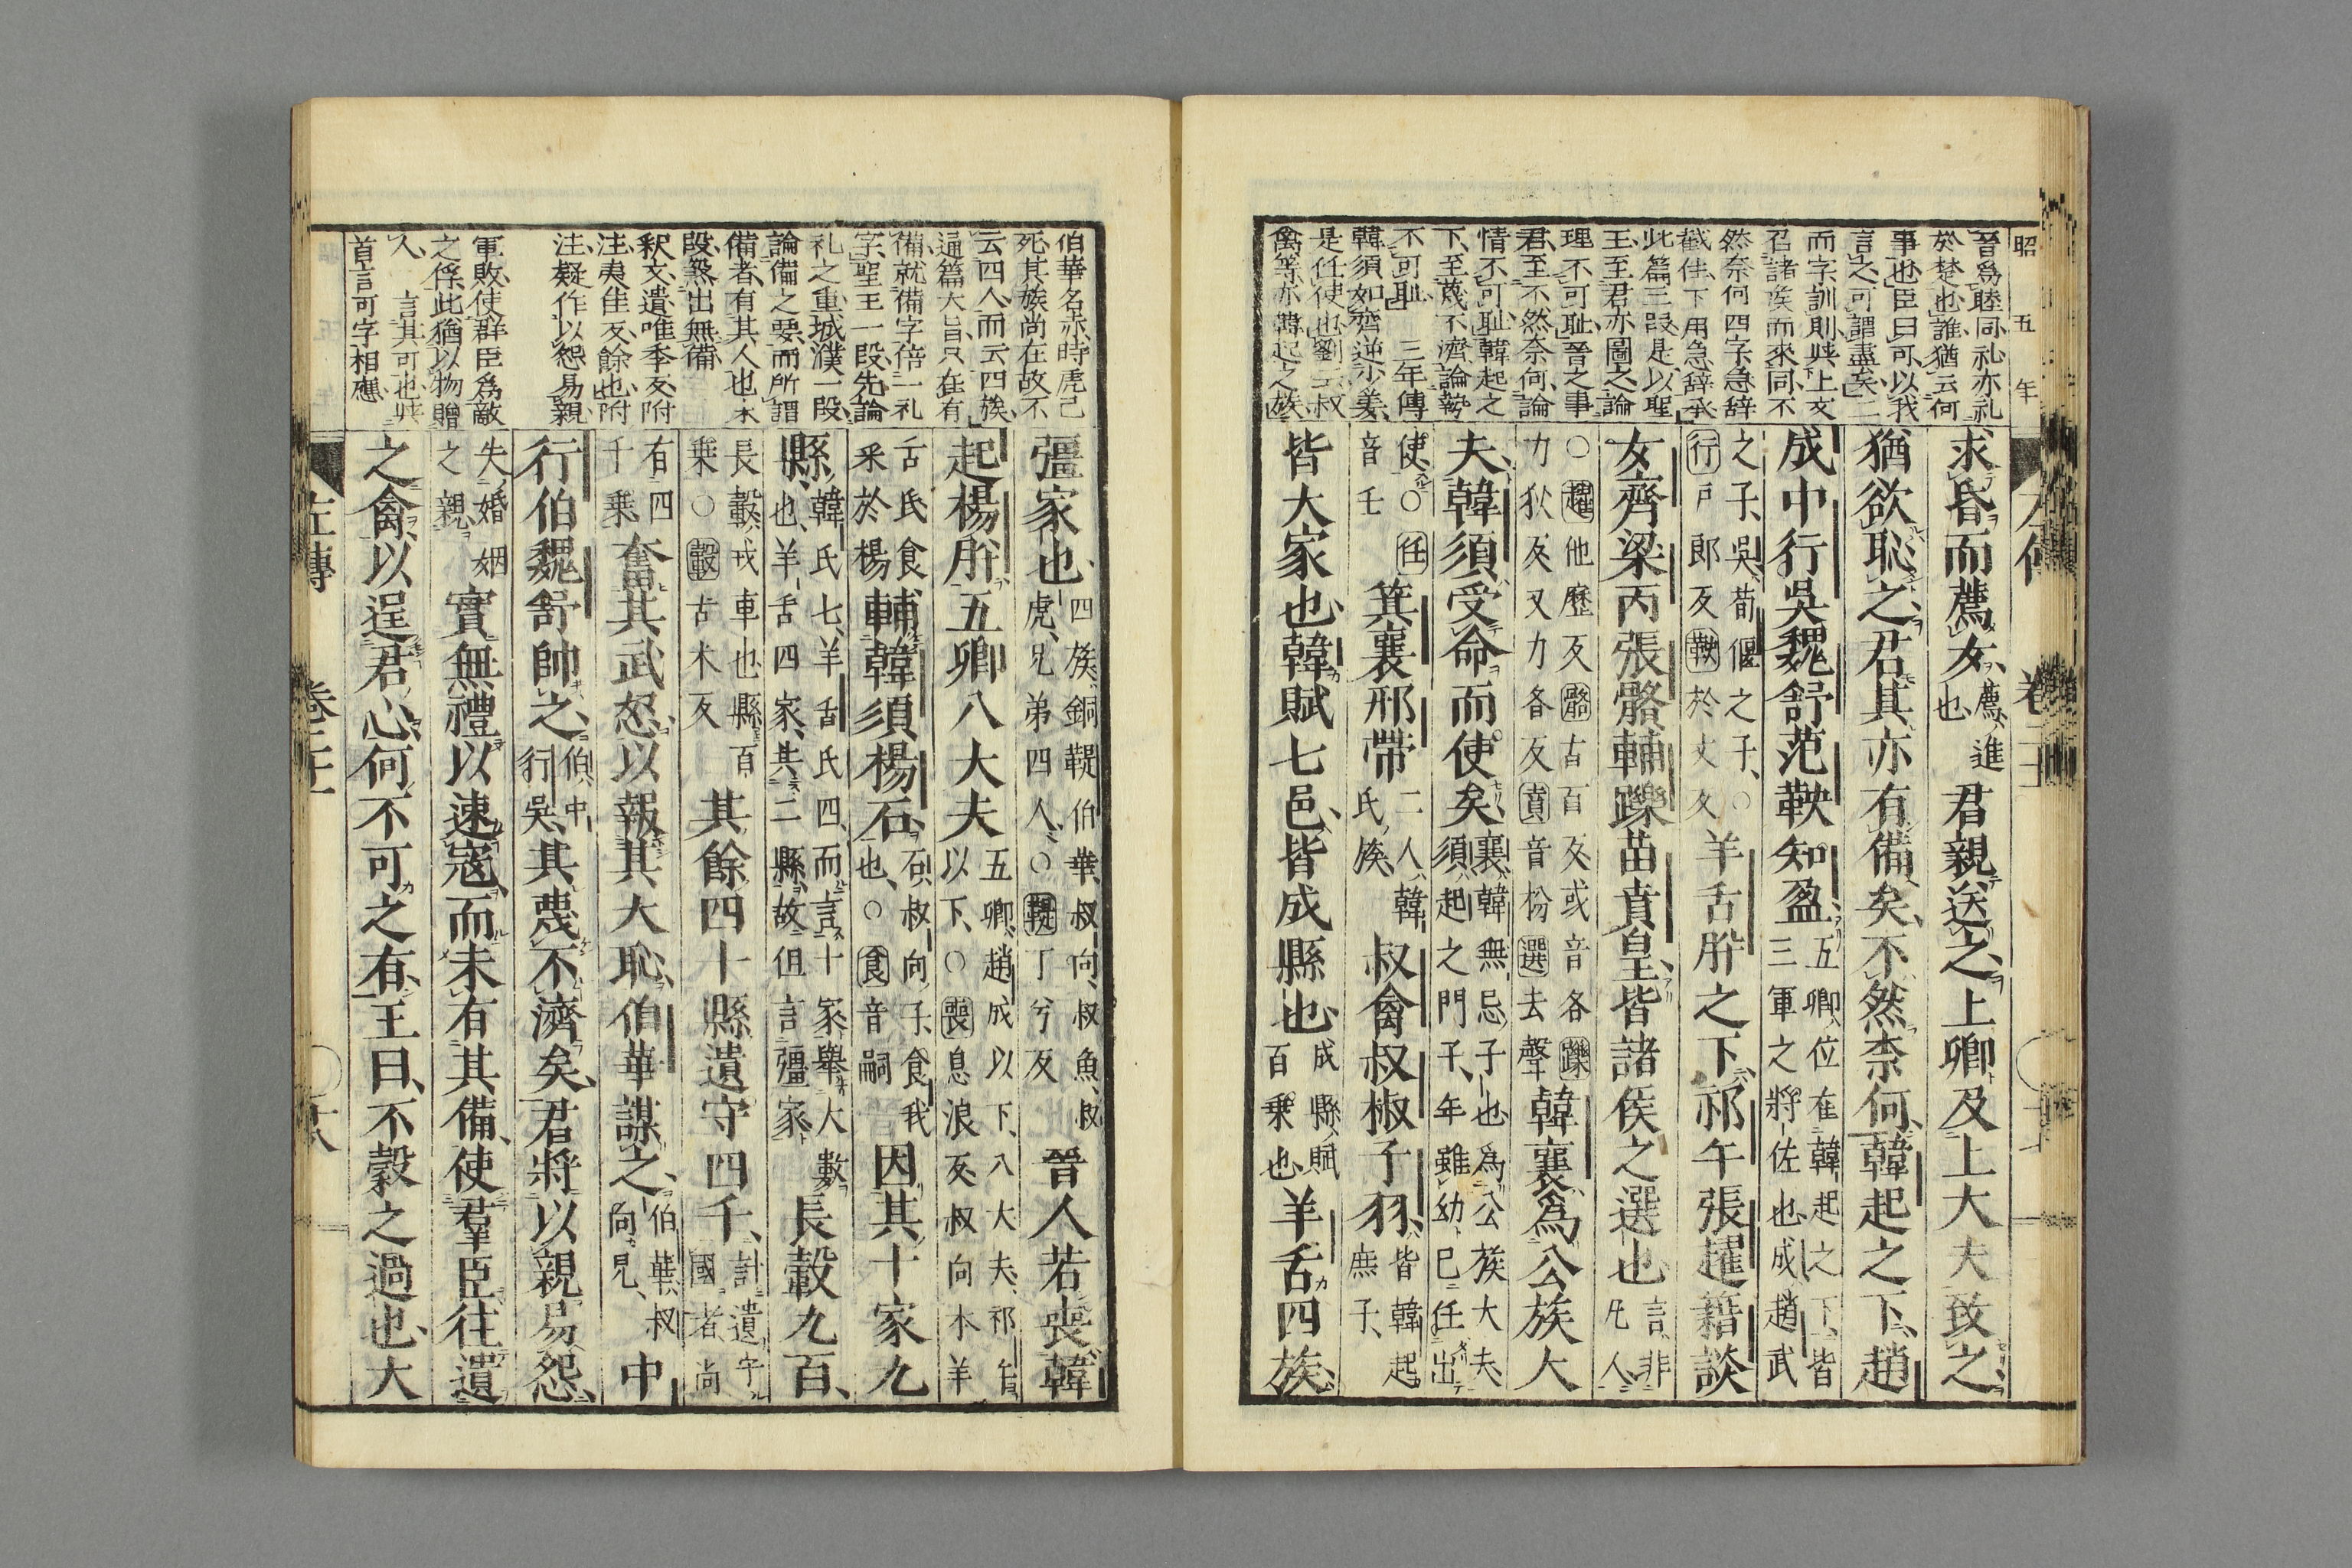 昭五年
晉爲睦同礼亦礼
於楚也誰猶云何
事也臣曰可以我
言之可謂盡矣二
而字訓則與上文
召諸矦而來同不
然奈何四字急辞
截住下用急辞承
此篇三段是以聖
王至君亦圖之論
理不可耻晉之事
君至不然奈何論
情不可耻韓起之
下至蔑不濟論勢
不可耻 三年傳
韓須如齊逆少姜
是任使也劉云叔
禽等亦韓起之族
求昏而薦女薦進也君親送之上卿及上大夫致之
猶欲恥之君其亦有備矣不然柰何韓起之下趙
成中行吳魏舒范鞅知盈五卿位在韓起之下皆三軍之將佐也成趙武
之子吳荀偃之子○行戶郎反鞅於丈反羊舌肸之下祁午張趯籍談
女齊梁丙張骼輔躒苗賁皇皆諸矦之選也言非凡人
○趯他歷反骼古百反或音各躒力狄反又力各反賁音枌選去聲韓襄爲公族大
夫韓須受命而使矣襄韓無忌子也爲公族大夫須起之門子年雖幼已任出
使○任音壬箕襄邢帶二人韓氏族叔禽叔椒子羽皆韓起庶子
皆大家也韓賦七邑皆成縣也成縣賦百乗也羊舌四族
伯華名赤時虎已
死其族尚在故不
云四人而云四族
通篇大旨只在有
備就備字倍一礼
字聖王一段先論
礼之重城濮一段
論備之要而所謂
備者有其人也末
段煞出無備
釈文遺唯季反附
注夷隹反餘也附
注疑作以怨易親
軍敗使群臣爲敵
之俘此猶以物贈
人 言其可也與
首言可字相應
彊家也四族銅鞮伯華叔向叔魚叔虎兄弟四人○鞮丁兮反晉人若喪韓
起楊肸五卿八大夫五卿趙成以下八大夫祁午以下○喪息浪反叔向本羊
舌氏食采於楊輔韓須楊石石叔向子食我也○食音嗣因其十家九
縣韓氏七羊舌氏四而言十家舉大數也羊舌四家共二縣故但言彊家長轂九百
長轂戎車也縣百乗○轂古木反其餘四十縣遺守四千計遺守國者尚
有四千乗奮其武怒以報其大恥伯華謀之伯華叔向兄中
行伯魏舒帥之伯中行吳其蔑不濟矣君將以親易怨
失婚姻之親實無禮以速寇而未有其備使羣臣往遺
之禽以逞君心何不可之有王曰不穀之過也大
左傳 卷二十一 十八